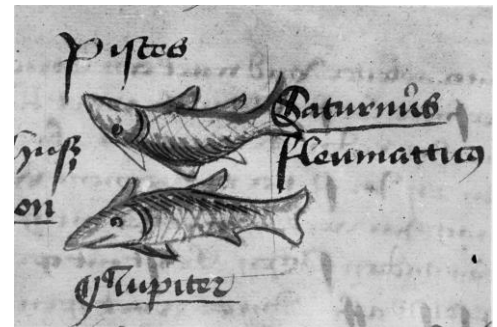 Pisces
Saturnus
fleumatticus
hus
on
Jupiter